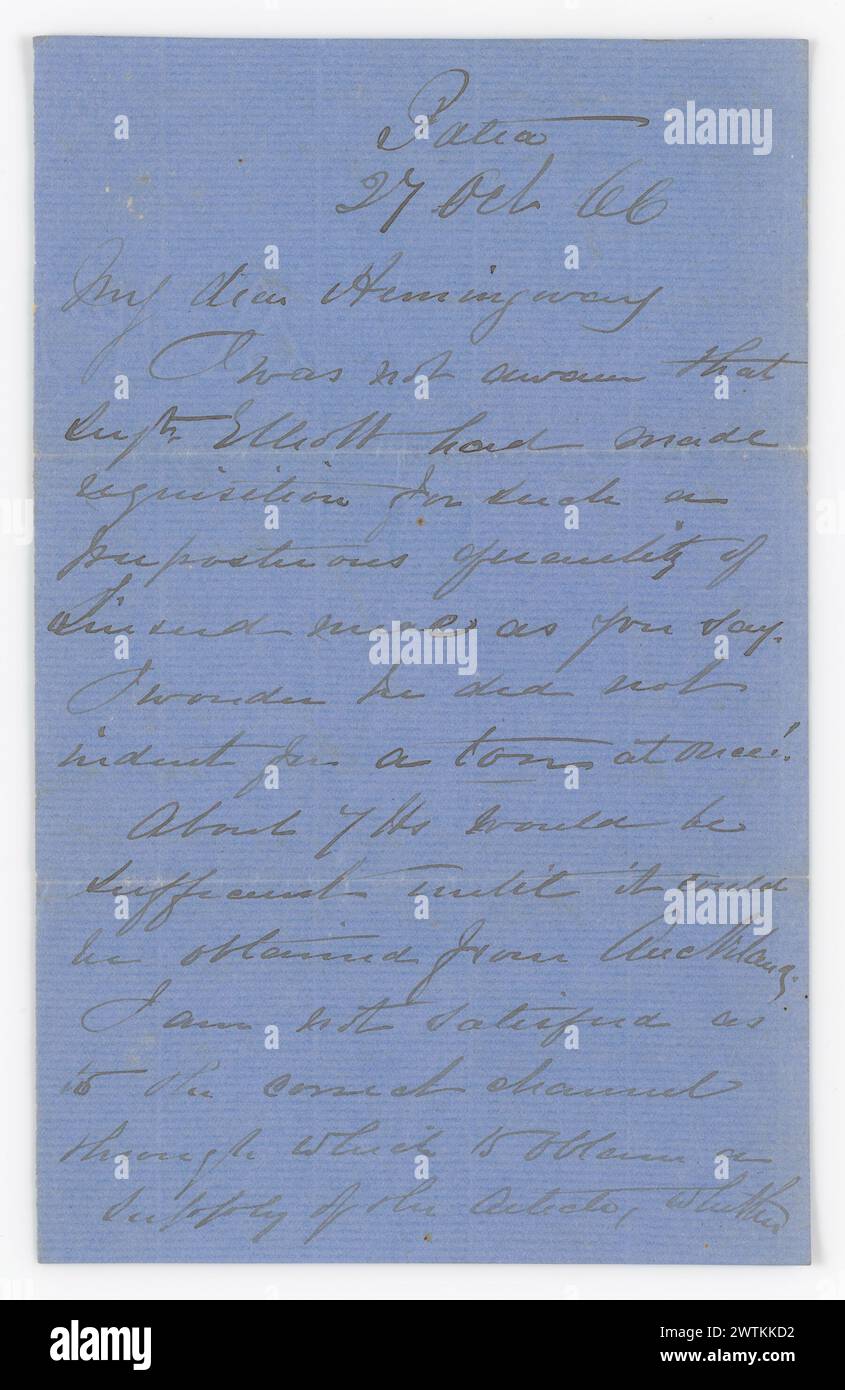 Patea
27 Oct 66
My dear Hemingway
I was not aware that
Supt. Elliott had made
requisition for such a
preposterous quantity of
Linseed meal as you say.
I wonder he did not
indent for a ton at once!
About 7 lbs would be
sufficient until it could
be obtained from Auckland.
I am not satisfied as
to the correct channel
through which to obtain a
supply of the article, whether
alamy
Image ID: 2WTKKD2
www.alamy.com